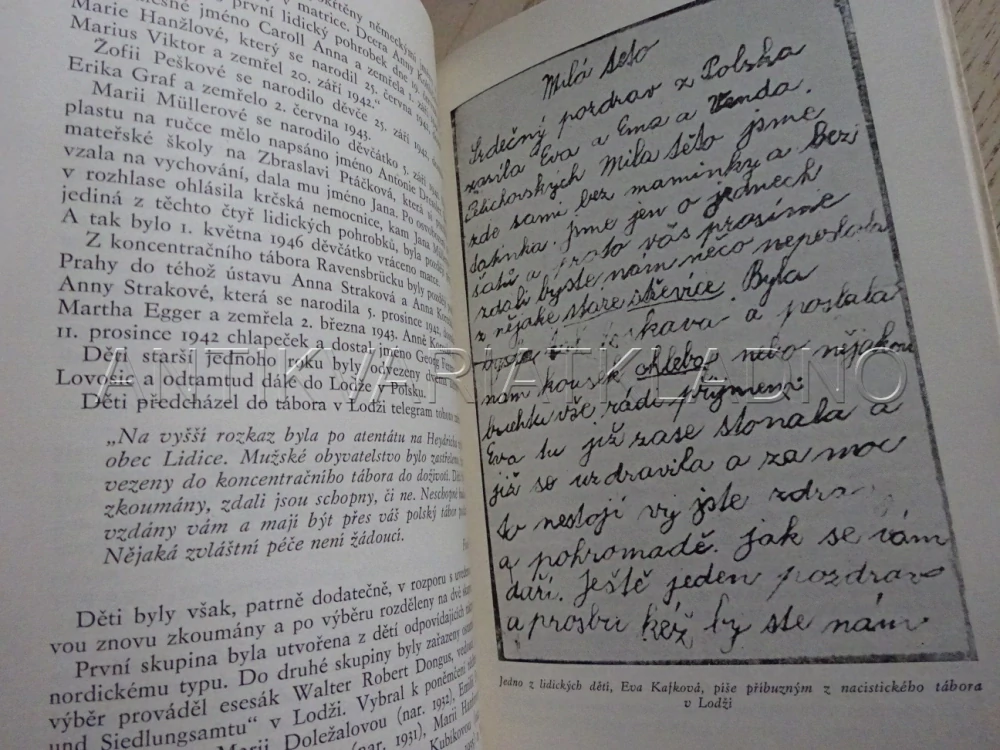 okřtěny německými
v matrice. Dcera Anny
první lidický pohrobek dne 19.
jméno Caroll Anna a zemřela 1. září
Marie Hanžlové, který se narodil 25. června
Marius Viktor a zemřel 20. září 1942.“
Žofii Peškové se narodilo děvče 25. září
Erika Graf a zemřelo 2. června 1943.
Marii Müllerové se narodilo děvčátko 5. září
plastu na ručce mělo napsáno jméno Antonie
mateřské školy na Zbraslavi Ptáčková, která
vzala na vychování, dala mu jméno Jana. Po
v rozhlase ohlásila krčská nemocnice, kam Jana
jediná z těchto čtyř lidických pohrobků, byla
A tak bylo 1. května 1946 děvčátko vráceno
Z koncentračního tábora Ravensbrücku byly
Prahy do téhož ústavu Anna Straková a Anna
Anny Strakové, která se narodila 5. prosince 1942,
Martha Egger a zemřela 2. března 1943. Anně
11. prosince 1942 chlapeček a dostal jméno Georg
Děti starší jednoho roku byly odvezeny dvěma
Lovosic a odtamtud dále do Lodže v Polsku.
Děti předcházel do tábora v Lodži telegram
„Na vyšší rozkaz byla po atentátu na Heydricha
obec Lidice. Mužské obyvatelstvo bylo zastřeleno
vezeny do koncentračního tábora do doživotí.
zkoumány, zdali jsou schopny, či ne. Neschopné
vzdány vám a mají být přes váš polský tábor
Nějaká zvláštní péče není žádoucí.
Děti byly však, patrně dodatečně, v rozporu s
vou znovu zkoumány a po výběru rozděleny na dvě
První skupina byla utvořena z dětí odpovídajících
nordickému typu. Do druhé skupiny byly zařazeny
výběr prováděl esesák Walter Robert Dongus,
und Siedlungsamtu“ v Lodži. Vybral k poněmčení
Marii Doležalovou (nar. 1932),
(nar. 1931), Marii
Kubíkovou
Milá teto
Srdečný pozdrav z Polska
zasílá Eva a Ema a Venda.
Milá teto jsme
zde sami bez maminky a bez
tatínka. Jsme jen o jedněch
šatů a proto vás prosíme
zdali byste nám něco neposlala
z nějaké staré střevíce. Byla
a poslala
nám kousek chleba nebo nějakou
buchtu vše rádi přijmem.
Eva tu již zase stonala a
již se uzdravila a za moc
to nestojí vy jste
a pohromadě. jak se vám
daří. Ještě jeden pozdrav
a prosbu kéž by ste nám
Jedno z lidických dětí, Eva Kajková, píše příbuzným z nacistického tábora
v Lodži
ANTIKVARIATKLADNO